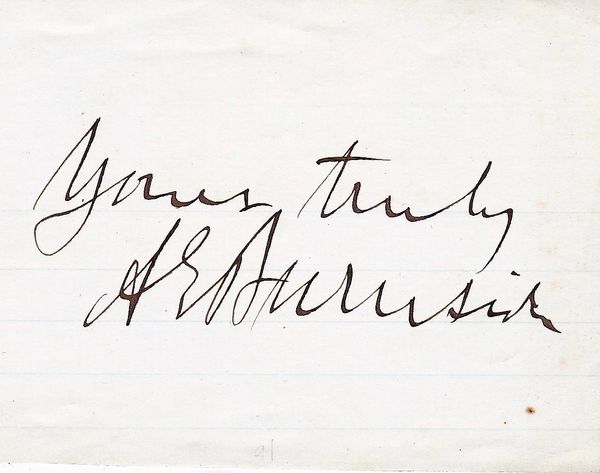 Yours truly
A E Burnside